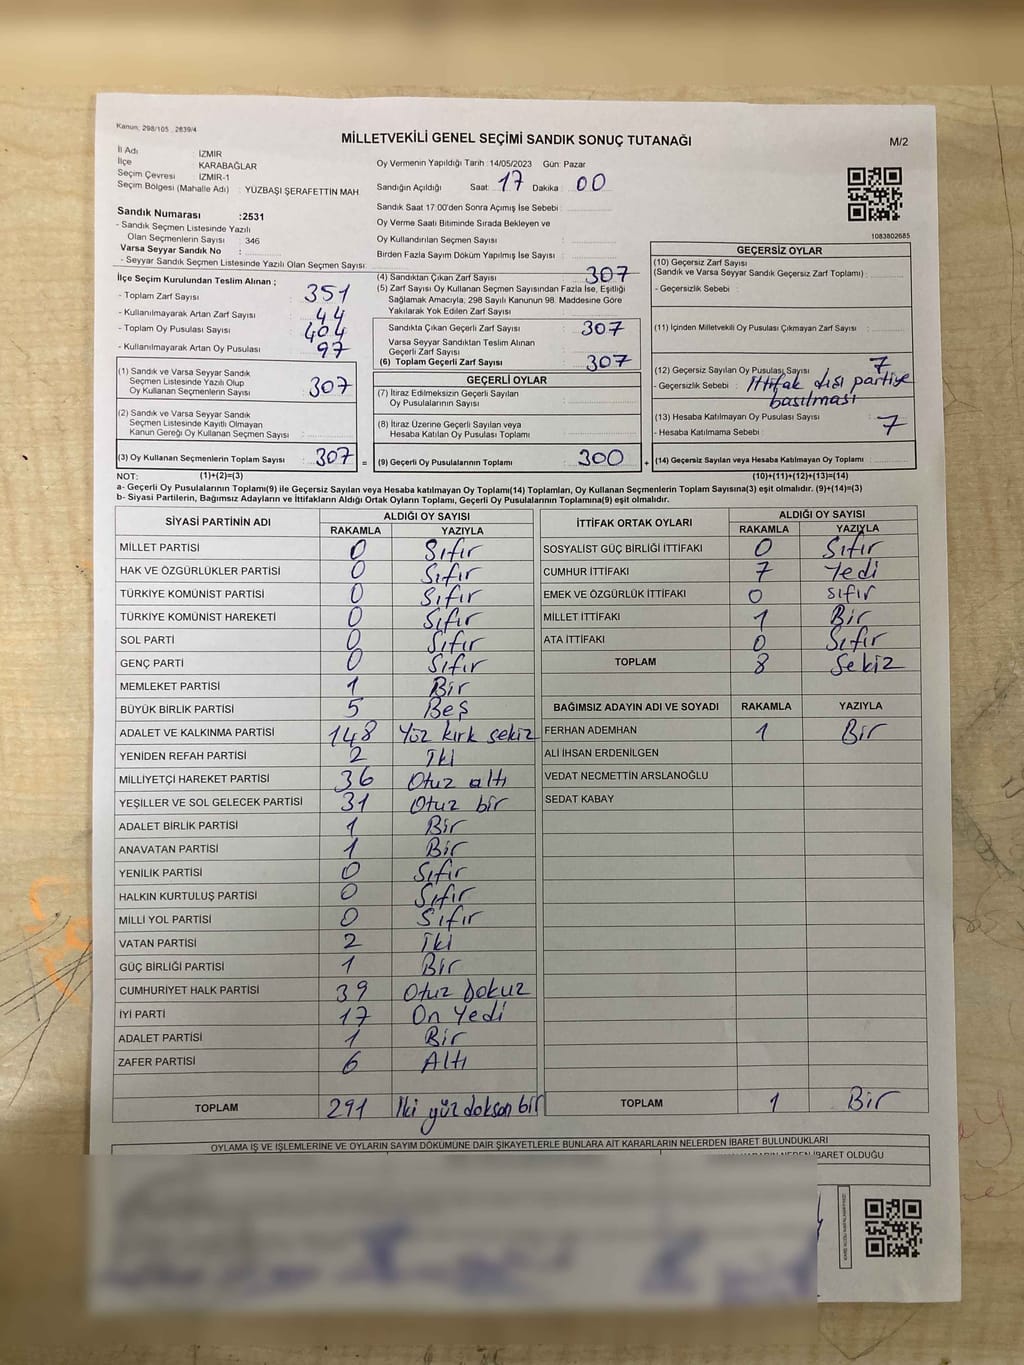 Kanun; 298/105 , 2839/4
MİLLETVEKİLİ GENEL SEÇİMİ SANDIK SONUÇ TUTANAĞI
M/2
İl Adı İZMİR
İlçe KARABAĞLAR
Seçim Çevresi İZMİR-1
Seçim Bölgesi (Mahalle Adı) : YÜZBAŞI ŞERAFETTİN MAH.
Oy Vermenin Yapıldığı Tarih : 14/05/2023 Gün: Pazar
Sandığın Açıldığı Saat: 17 Dakika : 00
Sandık Saat 17:00'den Sonra Açımış İse Sebebi :
Oy Verme Saati Bitiminde Sırada Bekleyen ve
Oy Kullandırılan Seçmen Sayısı :
Birden Fazla Sayım Döküm Yapılmış İse Sayısı :
1083802685
Sandık Numarası :2531
- Sandık Seçmen Listesinde Yazılı
Olan Seçmenlerin Sayısı : 346
Varsa Seyyar Sandık No :
- Seyyar Sandık Seçmen Listesinde Yazılı Olan Seçmen Sayısı:
İlçe Seçim Kurulundan Teslim Alınan ;
- Toplam Zarf Sayısı : 351
- Kullanılmayarak Artan Zarf Sayısı : 44
- Toplam Oy Pusulası Sayısı : 404
- Kullanılmayarak Artan Oy Pusulası : 97
(1) Sandık ve Varsa Seyyar Sandık
Seçmen Listesinde Yazılı Olup
Oy Kullanan Seçmenlerin Sayısı : 307
(2) Sandık ve Varsa Seyyar Sandık
Seçmen Listesinde Kayıtlı Olmayan
Kanun Gereği Oy Kullanan Seçmen Sayısı :
(3) Oy Kullanan Seçmenlerin Toplam Sayısı : 307 =
(4) Sandıktan Çıkan Zarf Sayısı : 307
(5) Zarf Sayısı Oy Kullanan Seçmen Sayısından Fazla İse, Eşitliği
Sağlamak Amacıyla, 298 Sayılı Kanunun 98. Maddesine Göre
Yakılarak Yok Edilen Zarf Sayısı :
Sandıkta Çıkan Geçerli Zarf Sayısı : 307
Varsa Seyyar Sandıktan Teslim Alınan
Geçerli Zarf Sayısı :
(6) Toplam Geçerli Zarf Sayısı : 307
GEÇERLİ OYLAR
(7) İtiraz Edilmeksizin Geçerli Sayılan
Oy Pusulalarının Sayısı :
(8) İtiraz Üzerine Geçerli Sayılan veya
Hesaba Katılan Oy Pusulası Toplamı :
(9) Geçerli Oy Pusulalarının Toplamı : 300 +
GEÇERSİZ OYLAR
(10) Geçersiz Zarf Sayısı
(Sandık ve Varsa Seyyar Sandık Geçersiz Zarf Toplamı) :
- Geçersizlik Sebebi :
(11) İçinden Milletvekili Oy Pusulası Çıkmayan Zarf Sayısı :
(12) Geçersiz Sayılan Oy Pusulası Sayısı : 7
- Geçersizlik Sebebi : İttifak dışı partiye
basılması
(13) Hesaba Katılmayan Oy Pusulası Sayısı : 7
- Hesaba Katılmama Sebebi :
(14) Geçersiz Sayılan veya Hesaba Katılmayan Oy Toplamı :
NOT: (1)+(2)=(3) (10)+(11)+(12)+(13)=(14)
a- Geçerli Oy Pusulalarının Toplamı(9) ile Geçersiz Sayılan veya Hesaba katılmayan Oy Toplamı(14) Toplamları, Oy Kullanan Seçmenlerin Toplam Sayısına(3) eşit olmalıdır. (9)+(14)=(3)
b- Siyasi Partilerin, Bağımsız Adayların ve İttifakların Aldığı Ortak Oyların Toplamı, Geçerli Oy Pusulalarının Toplamına(9) eşit olmalıdır.
SİYASİ PARTİNİN ADI ALDIĞI OY SAYISI
RAKAMLA YAZIYLA
MİLLET PARTİSİ 0 Sıfır
HAK VE ÖZGÜRLÜKLER PARTİSİ 0 Sıfır
TÜRKİYE KOMÜNİST PARTİSİ 0 Sıfır
TÜRKİYE KOMÜNİST HAREKETİ 0 Sıfır
SOL PARTİ 0 Sıfır
GENÇ PARTİ 0 Sıfır
MEMLEKET PARTİSİ 1 Bir
BÜYÜK BİRLİK PARTİSİ 5 Beş
ADALET VE KALKINMA PARTİSİ 148 Yüz kırk sekiz
YENİDEN REFAH PARTİSİ 2 İki
MİLLİYETÇİ HAREKET PARTİSİ 36 Otuz altı
YEŞİLLER VE SOL GELECEK PARTİSİ 31 Otuz bir
ADALET BİRLİK PARTİSİ 1 Bir
ANAVATAN PARTİSİ 1 Bir
YENİLİK PARTİSİ 0 Sıfır
HALKIN KURTULUŞ PARTİSİ 0 Sıfır
MİLLİ YOL PARTİSİ 0 Sıfır
VATAN PARTİSİ 2 İki
GÜÇ BİRLİĞİ PARTİSİ 1 Bir
CUMHURİYET HALK PARTİSİ 39 Otuz Dokuz
İYİ PARTİ 17 On Yedi
ADALET PARTİSİ 1 Bir
ZAFER PARTİSİ 6 Altı
TOPLAM 291 İki yüz doksan bir
İTTİFAK ORTAK OYLARI ALDIĞI OY SAYISI
RAKAMLA YAZIYLA
SOSYALİST GÜÇ BİRLİĞİ İTTİFAKI 0 Sıfır
CUMHUR İTTİFAKI 7 Yedi
EMEK VE ÖZGÜRLÜK İTTİFAKI 0 sıfır
MİLLET İTTİFAKI 1 Bir
ATA İTTİFAKI 0 Sıfır
TOPLAM 8 Sekiz
BAĞIMSIZ ADAYIN ADI VE SOYADI RAKAMLA YAZIYLA
FERHAN ADEMHAN 1 Bir
ALİ İHSAN ERDENİLGEN
VEDAT NECMETTİN ARSLANOĞLU
SEDAT KABAY
TOPLAM 1 Bir
OYLAMA İŞ VE İŞLEMLERİNE VE OYLARIN SAYIM DÖKÜMÜNE DAİR ŞİKAYETLERLE BUNLARA AİT KARARLARIN NELERDEN İBARET BULUNDUKLARI
İBARET OLDUĞU